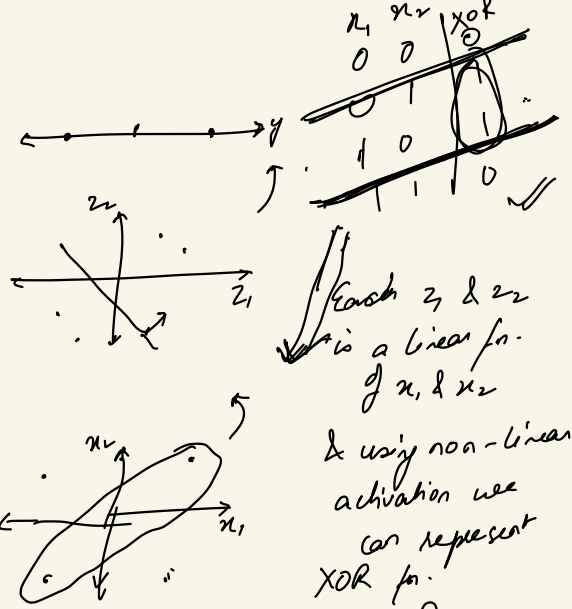 x₁ x₂ XOR
0 0 0
0 1 1
1 0 1
1 1 0
y
z₂
z₁
Each z₁ & z₂
is a linear fn.
of x₁ & x₂
& using non-linear
activation we
can represent
XOR fn.
x₂
x₁